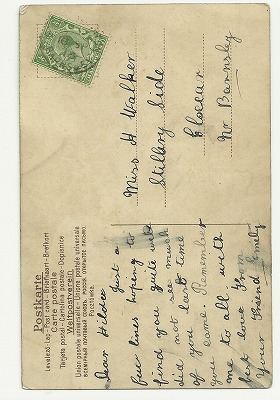 Postkarte
Carte postale
Weltpostverein
Levelező-Lap - Post card - Briefkaart - Brefkort
Tarjeta postal - Cartolina postale - Dopisnice
Union postale universelle - Unione postale universale
ВСЕМІРНЫЙ ПОЧТОВЫЙ СОЮЗЪ. РОССІЯ. ОТКРЫТОЕ ПИСЬМО.
Miss H Walker
Side
Nr Barnsley
Dear
Just a
few lines hoping to
find you quite well
did not see much
of you last time
you came Remember
me to all with
best love from
Your Friend Emily